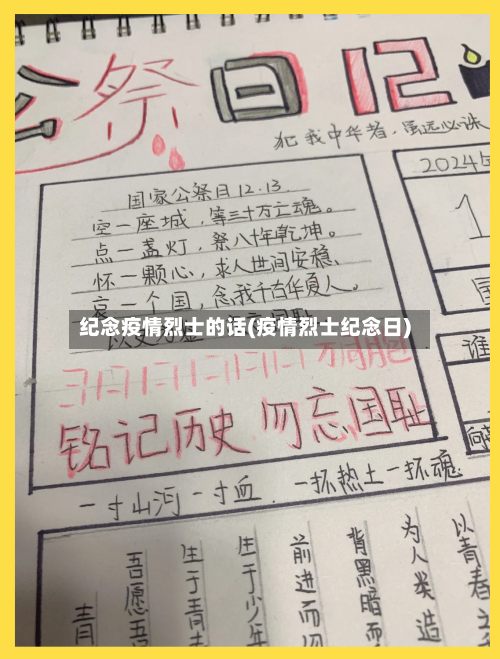 公祭日 12
犯我中华者,虽远必诛
2024年
国家公祭日12.13
空一座城,等三十万亡魂。
点一盏灯,祭八十年乾坤。
怀一颗心,求人世间安稳、
哀一个国,念我千古华夏人。
纪念疫情烈士的话(疫情烈士纪念日)
万同胞
铭记历史 勿忘国耻
谁
向
一寸山河一寸血 一抔热土一抔魂
以青春之
为人类造
背黑暗而
前进而切
生于少年
生于青
吾愿吾
青